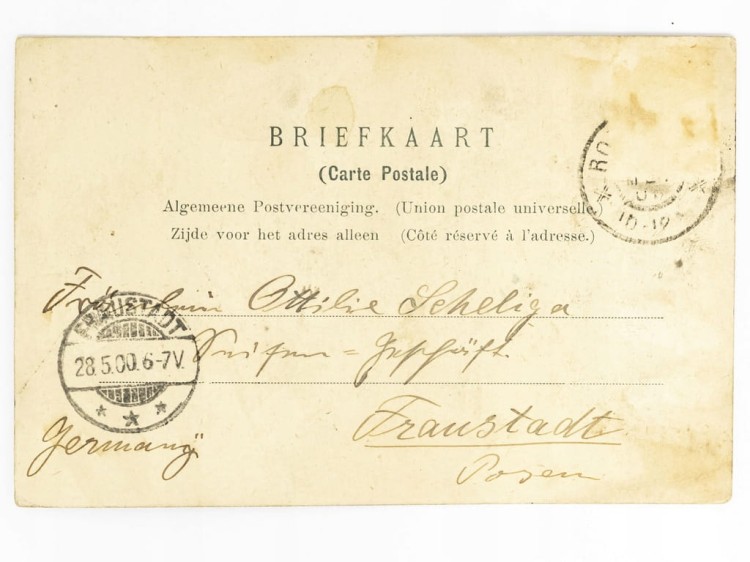 BRIEFKAART
(Carte Postale)
Algemeene Postvereeniging. (Union postale universelle.)
Zijde voor het adres alleen (Côté réservé à l'adresse.)
RO
10-12
Fräulein Ottilie Scheliga
FRAUSTADT
28.5.00.6-7V.
Seifen=Geschäft
Fraustadt
Germany
Posen